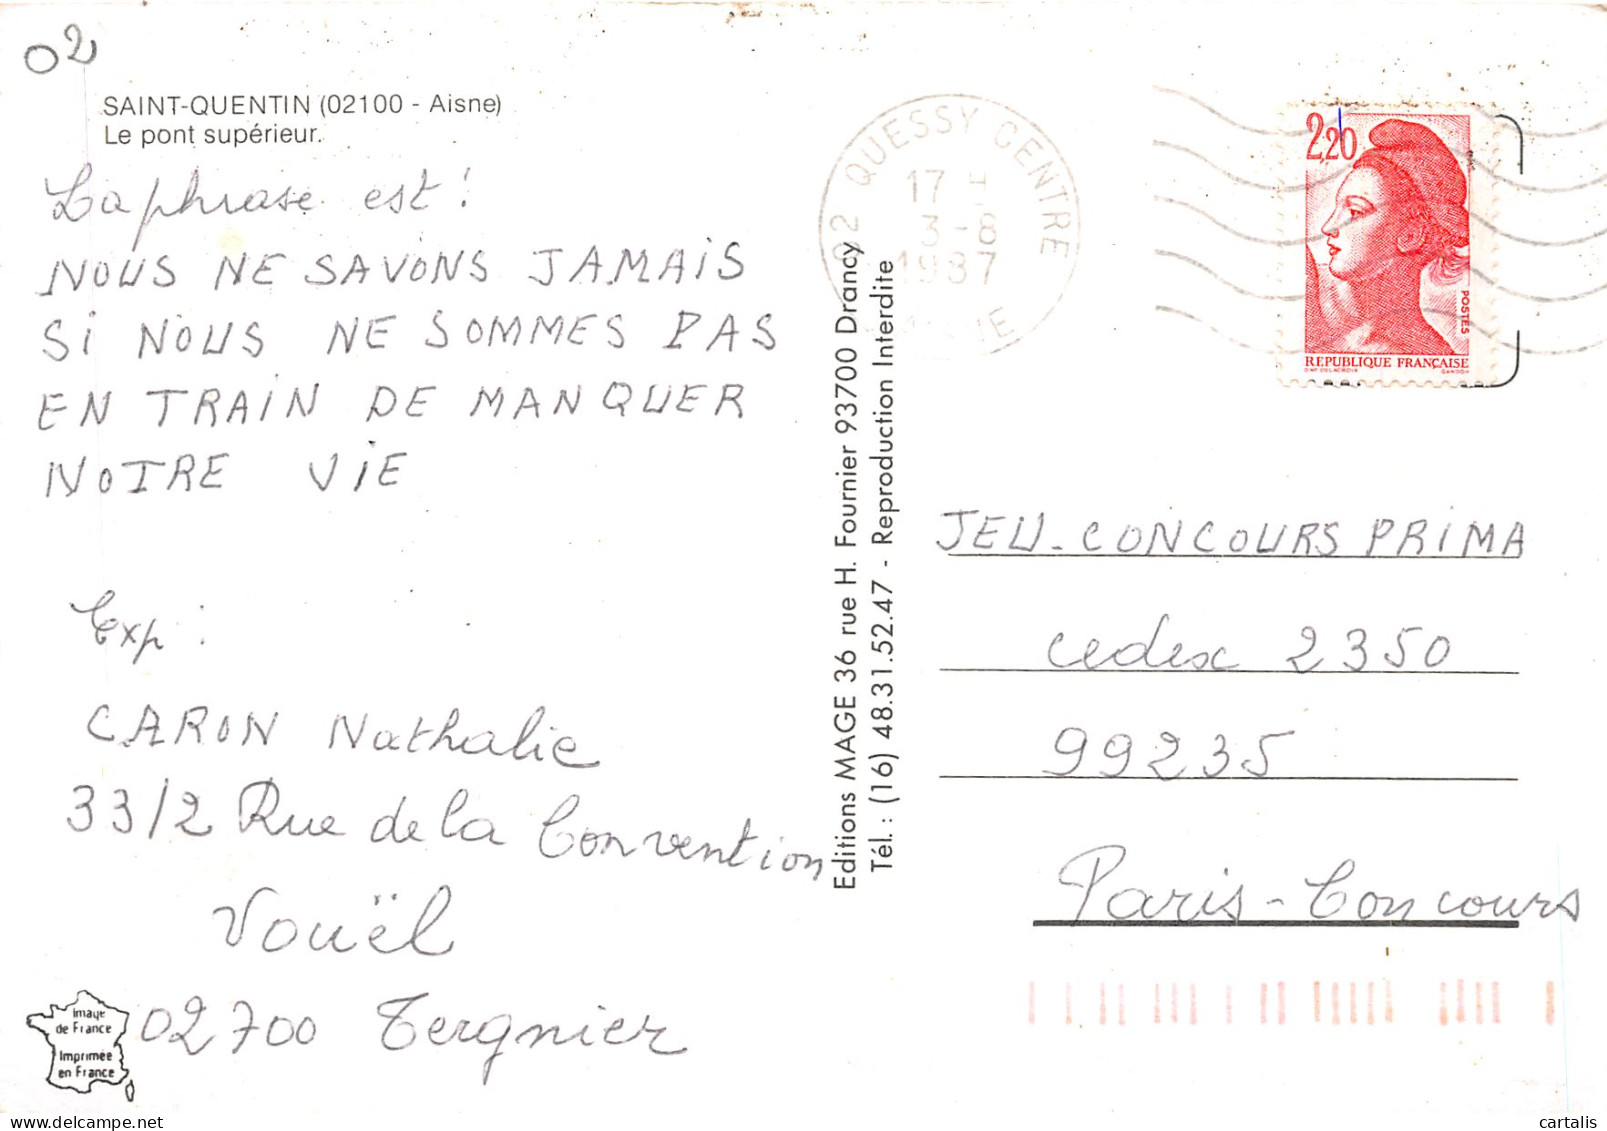 02
SAINT-QUENTIN (02100 - Aisne)
Le pont supérieur.
La phrase est :
NOUS NE SAVONS JAMAIS
Si NOUS NE SOMMES PAS
EN TRAIN DE MANQUER
NOTRE ViE
Exp :
CARON Nathalie
33/2 Rue de la Convention
Vouël
02700 Tergnier
Image
de France
Imprimée
en France
Editions MAGE 36 rue H. Fournier 93700 Drancy
Tél. : (16) 48.31.52.47 - Reproduction Interdite
02 QUESSY CENTRE
17 H
3-8
1987
AISNE
2,20
POSTES
REPUBLIQUE FRANÇAISE
D'AP. DELACROIX GANDON
JEU-CONCOURS PRiMA
cedex 2350
99235
Paris-Concours
cartalis